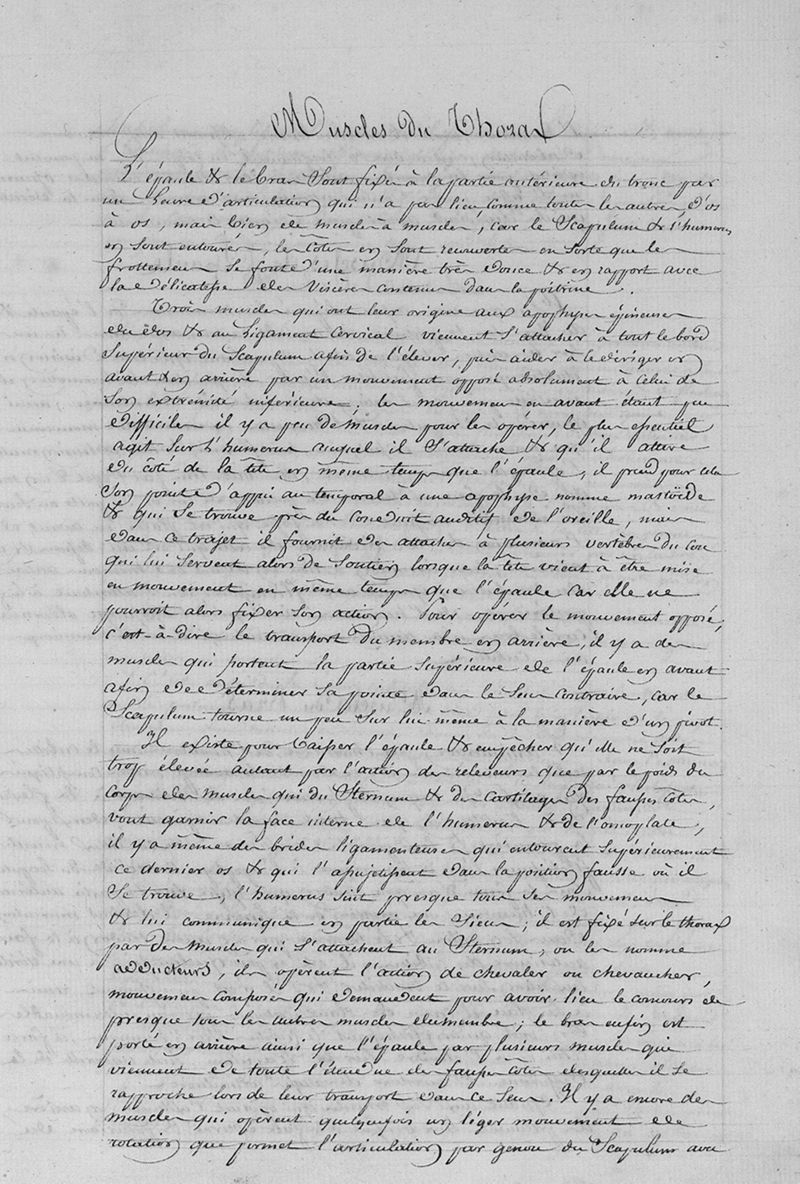 Muscles du Thorax
L'épaule & le bras sont fixé à la partie antérieure du tronc par
un genre d'articulation qui n'a pas lieu, comme toutes les autres, d'os
à os, mais bien de muscles à muscles, car le Scapulum & l'humerus
en sont entourés, les côtes en sont recouvertes en sorte que les
frottemens se font d'une manière très douce & en rapport avec
la délicatesse des viscères contenus dans la poitrine.
Trois muscles qui ont leur origine aux apophyses épineuses
du dos & au ligament cervical viennent s'attacher à tout le bord
supérieur du Scapulum afin de l'élever, puis aider à le diriger en
avant & en arrière par un mouvement opposé absolument à celui de
son éxtrémité inférieure; les mouvemens en avant étant peu
difficiles il y a peu de muscles pour les opérer, le plus essentiel
agit sur l'humerus auquel il s'attache & qu'il attire
du coté de la tête en même temps que l'épaule, il prend pour cela
son point d'appui au temporal à une apophyse nomme mastoïde
& qui se trouve près du conduit auditif de l'oreille, mais
dans ce trajet il fournit des attaches à plusieurs vertèbres du cou
qui lui servent alors de soutien lorsque la tête vient à être mise
en mouvement en même temps que l'épaule car elle ne
pourroit alors fixer son action. Pour opérer le mouvement opposé,
c'est-à-dire le transport du membre en arrière, il y a des
muscles qui portent la partie supérieure de l'épaule en avant
afin de déterminer sa pointe dans le sens contraire, car le
Scapulum tourne un peu sur lui même à la manière d'un pivot.
Il existe pour baisser l'épaule & empêcher qu'elle ne soit
trop élevée autant par l'action des releveurs que par le poids du
corps des muscles qui du Sternum & des cartilages des fausses côtes,
vont garnir la face interne de l'humerus & de l'omoplate,
il y a même des brides ligamenteuses qui entourent supérieurement
ce dernier os & qui l'assujetissent dans la position fausse où il
se trouve, l'humerus suit presque tous ses mouvemens
& lui communique en partie les siens; il est fixé sur le thorax
par des muscles qui s'attachent au Sternum, on les nomme
adducteurs, ils opèrent l'action de chevaler ou chevaucher,
mouvemens composés qui demandent pour avoir lieu le concours de
presque tous les autres muscles du membre; le bras enfin est
porté en arrière ainsi que l'épaule par plusieurs muscles qui
viennent de toute l'étendue des fausses côtes desquelles il se
rapproche lors de leur transport dans ce sens. Il y a encore des
muscles qui opèrent quelquefois un léger mouvement de
rotation que permet l'articulation par genou du Scapulum avec